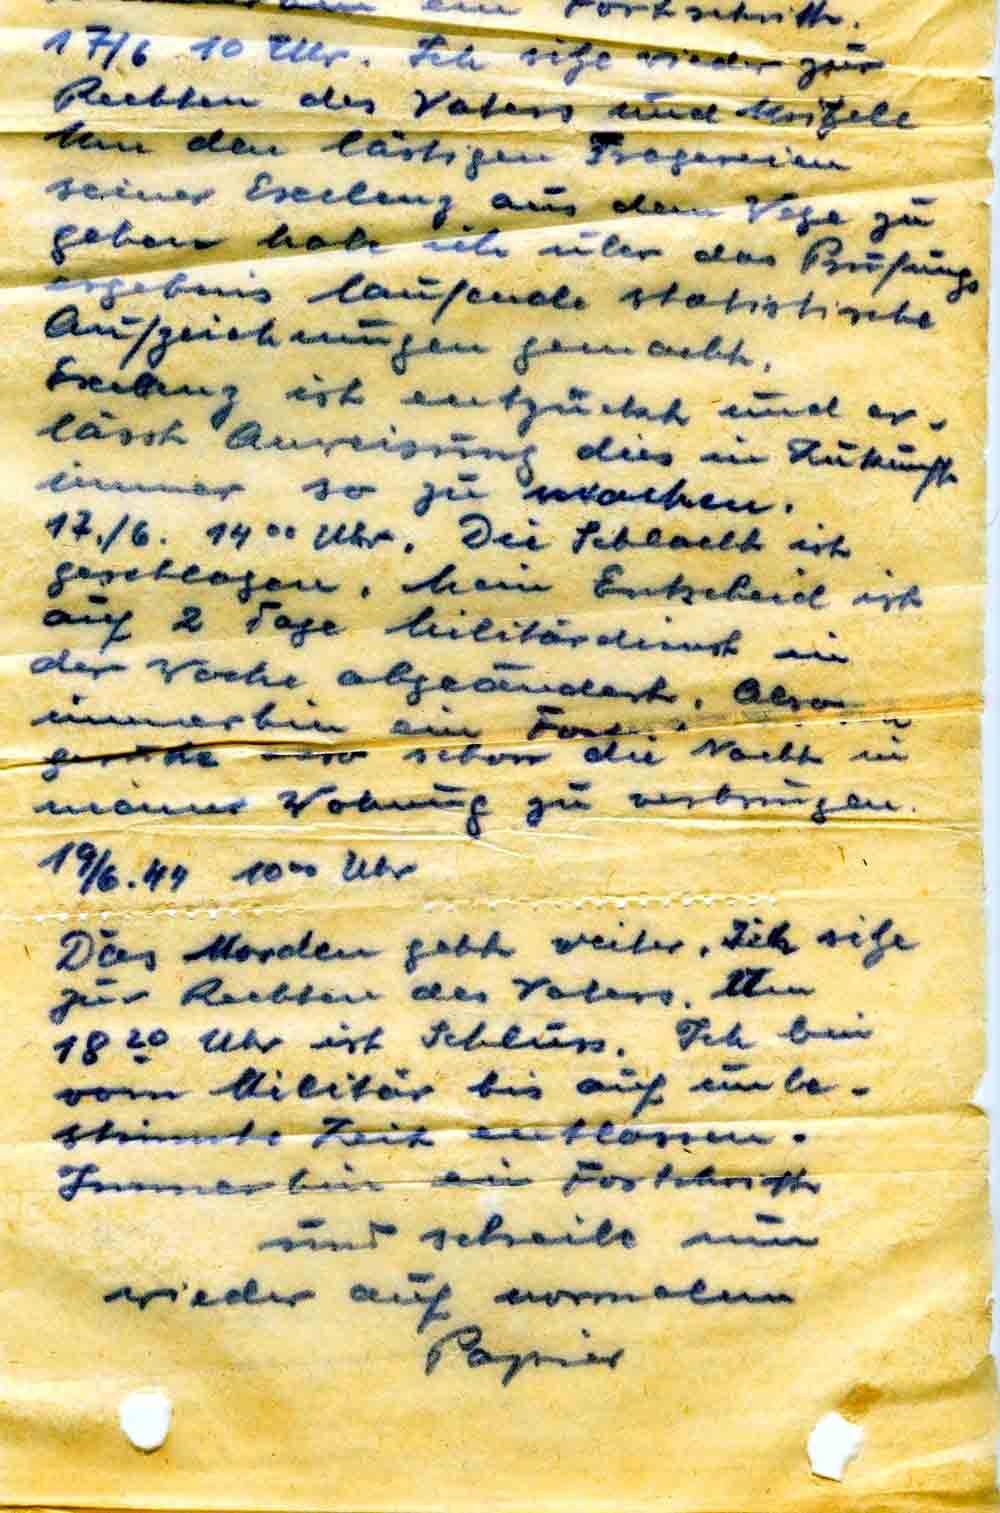 ein Fortschritt.
17/6 10 Uhr. Ich sitze wieder zur
Rechten des Vaters und kritzele
Um den lästigen Fragereien
seiner Exelenz aus dem Wege zu
gehen habe ich über das Prüfungs
ergebnis laufende statistische
Aufzeichnungen gemacht.
Exelenz ist entzückt und er-
lässt Anweisung dies in Zukunft
immer so zu machen.
17./6. 14⁰⁰ Uhr. Die Schlacht ist
geschlagen. Mein Entscheid ist
auf 2 Tage Militärdienst in
der Woche abgeändert. Also
immerhin ein
schon die Nacht in
meiner Wohnung zu verbringen.
19/6.44 10⁰⁰ Uhr
Das Morden geht weiter. Ich sitze
zur Rechten des Vaters. Um
18²⁰ Uhr ist Schluss. Ich bin
vom Militär bis auf unbe-
stimmte Zeit entlassen.
Immerhin ein Fortschritt
und schreibe nun
wieder auf normalem
Papier